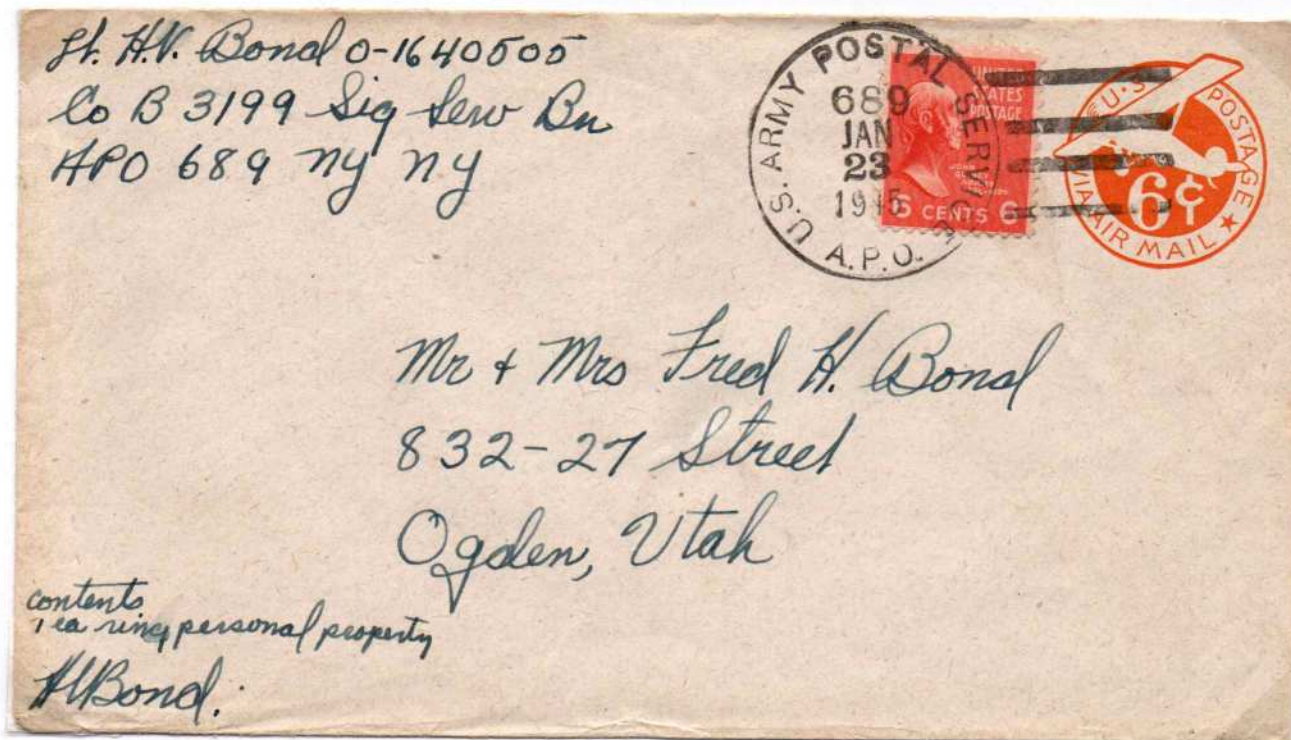 Lt. H.V. Bond O-1640505
Co B 3199 Sig Serv Bn
APO 689 NY NY
U.S. ARMY POSTAL SERVICE
689
JAN
23
1945
A.P.O.
UNITED
STATES
POSTAGE
JOHN
QUINCY
6 CENTS 6
U.S. POSTAGE
6¢
VIA AIR MAIL
Mr + Mrs Fred H. Bond
832-27 Street
Ogden, Utah
contents
1 ea ring personal property
HVBond.